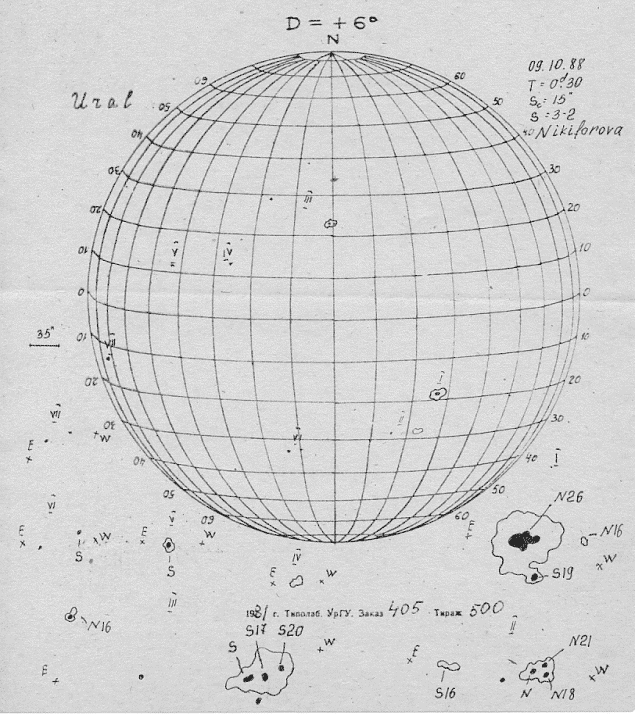 D = + 6°
N
Ural
09.10.88
T = 0ᵈ.30
S₀ = 15"
S = 3-2
Nikiforova
60
60
50
50
40
40
30
30
20
20
10
10
0
0
10
10
20
20
30
30
40
40
50
50
60
60
III
V
IV
VII
I
II
VI
35"
VII
E
W
I
N26
N16
S19
E
W
VI
E
W
S
V
E
W
S
IV
E
W
III
N16
1981 г. Типолаб. УрГУ. Заказ 405 Тираж 500
S
S17
S20
E
W
II
E
S16
N21
N
N18
W